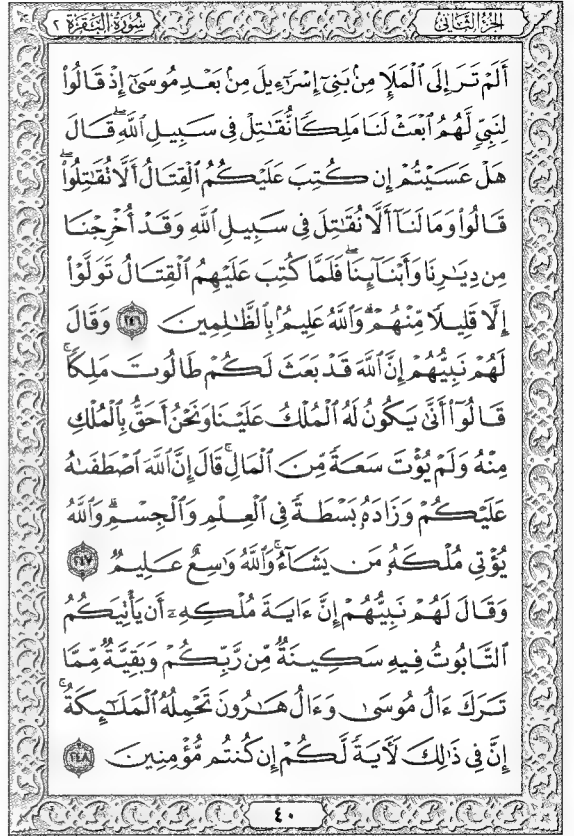 الجزء الثاني
سورة البقرة ٢
أَلَمْ تَرَ إِلَى ٱلْمَلَإِ مِنۢ بَنِىٓ إِسْرَٰٓءِيلَ مِنۢ بَعْدِ مُوسَىٰٓ إِذْ قَالُوا۟
لِنَبِىٍّ لَّهُمُ ٱبْعَثْ لَنَا مَلِكًا نُّقَٰتِلْ فِى سَبِيلِ ٱللَّهِ ۖ قَالَ
هَلْ عَسَيْتُمْ إِن كُتِبَ عَلَيْكُمُ ٱلْقِتَالُ أَلَّا تُقَٰتِلُوا۟ ۖ
قَالُوا۟ وَمَا لَنَآ أَلَّا نُقَٰتِلَ فِى سَبِيلِ ٱللَّهِ وَقَدْ أُخْرِجْنَا
مِن دِيَٰرِنَا وَأَبْنَآئِنَا ۖ فَلَمَّا كُتِبَ عَلَيْهِمُ ٱلْقِتَالُ تَوَلَّوْا۟
إِلَّا قَلِيلًا مِّنْهُمْ ۗ وَٱللَّهُ عَلِيمٌۢ بِٱلظَّٰلِمِينَ ٢٤٦ وَقَالَ
لَهُمْ نَبِيُّهُمْ إِنَّ ٱللَّهَ قَدْ بَعَثَ لَكُمْ طَالُوتَ مَلِكًا ۚ
قَالُوٓا۟ أَنَّىٰ يَكُونُ لَهُ ٱلْمُلْكُ عَلَيْنَا وَنَحْنُ أَحَقُّ بِٱلْمُلْكِ
مِنْهُ وَلَمْ يُؤْتَ سَعَةً مِّنَ ٱلْمَالِ ۚ قَالَ إِنَّ ٱللَّهَ ٱصْطَفَىٰهُ
عَلَيْكُمْ وَزَادَهُۥ بَسْطَةً فِى ٱلْعِلْمِ وَٱلْجِسْمِ ۖ وَٱللَّهُ
يُؤْتِى مُلْكَهُۥ مَن يَشَآءُ ۚ وَٱللَّهُ وَٰسِعٌ عَلِيمٌ ٢٤٧
وَقَالَ لَهُمْ نَبِيُّهُمْ إِنَّ ءَايَةَ مُلْكِهِۦٓ أَن يَأْتِيَكُمُ
ٱلتَّابُوتُ فِيهِ سَكِينَةٌ مِّن رَّبِّكُمْ وَبَقِيَّةٌ مِّمَّا
تَرَكَ ءَالُ مُوسَىٰ وَءَالُ هَٰرُونَ تَحْمِلُهُ ٱلْمَلَٰٓئِكَةُ ۚ
إِنَّ فِى ذَٰلِكَ لَءَايَةً لَّكُمْ إِن كُنتُم مُّؤْمِنِينَ ٢٤٨
٤٠